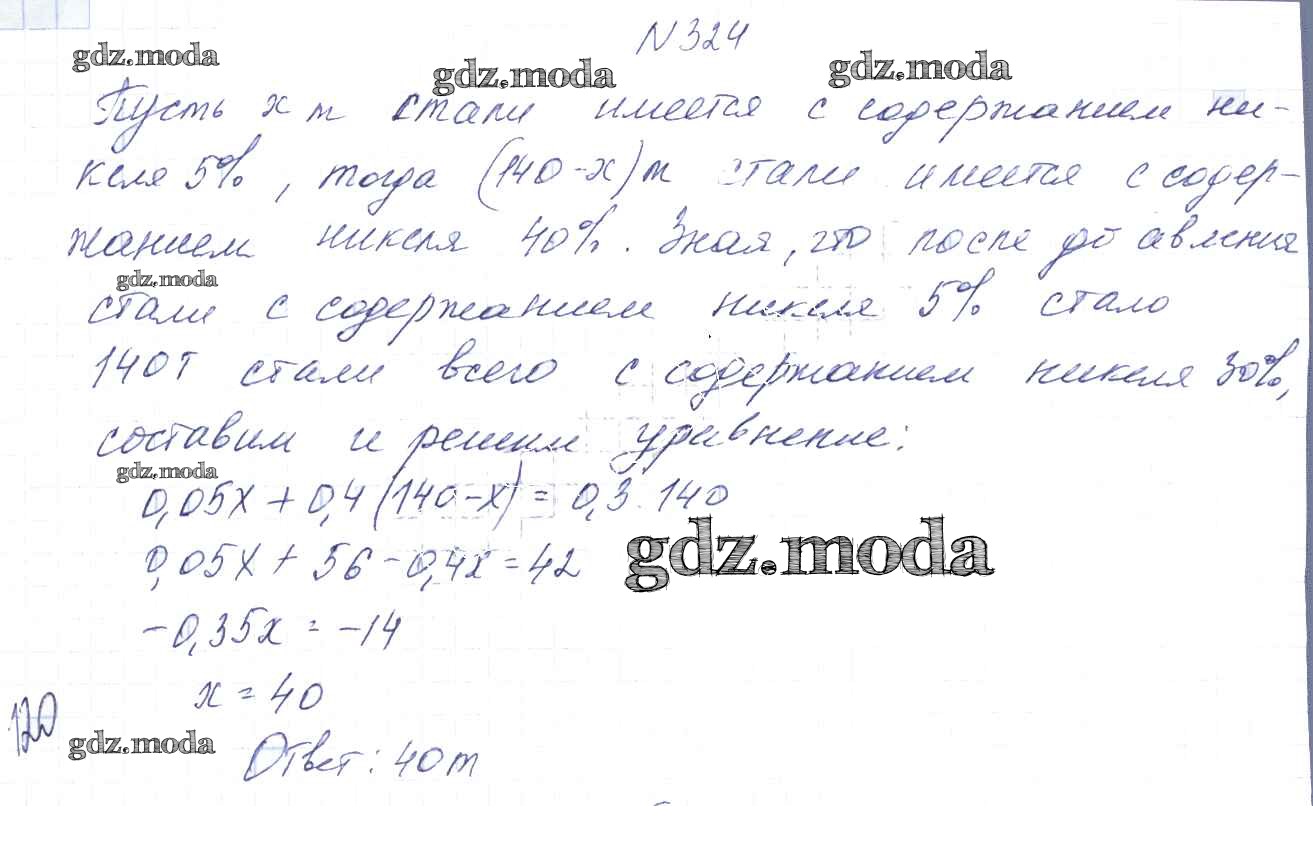 N 324
gdz.moda gdz.moda gdz.moda
Пусть x т стали имеется с содержанием ни-
келя 5%, тогда (140-x)т стали имеется с содер-
жанием никеля 40%. Зная, что после добавления
gdz.moda
стали с содержанием никеля 5% стало
140т стали всего с содержанием никеля 30%,
составим и решим уравнение:
gdz.moda
0,05x + 0,4(140-x) = 0,3·140
gdz.moda
0,05x + 56 - 0,4x = 42
-0,35x = -14
x = 40
120
gdz.moda
Ответ: 40т